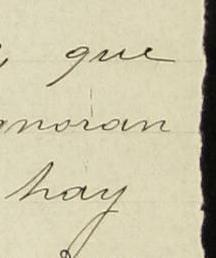 que
gnoran
hay